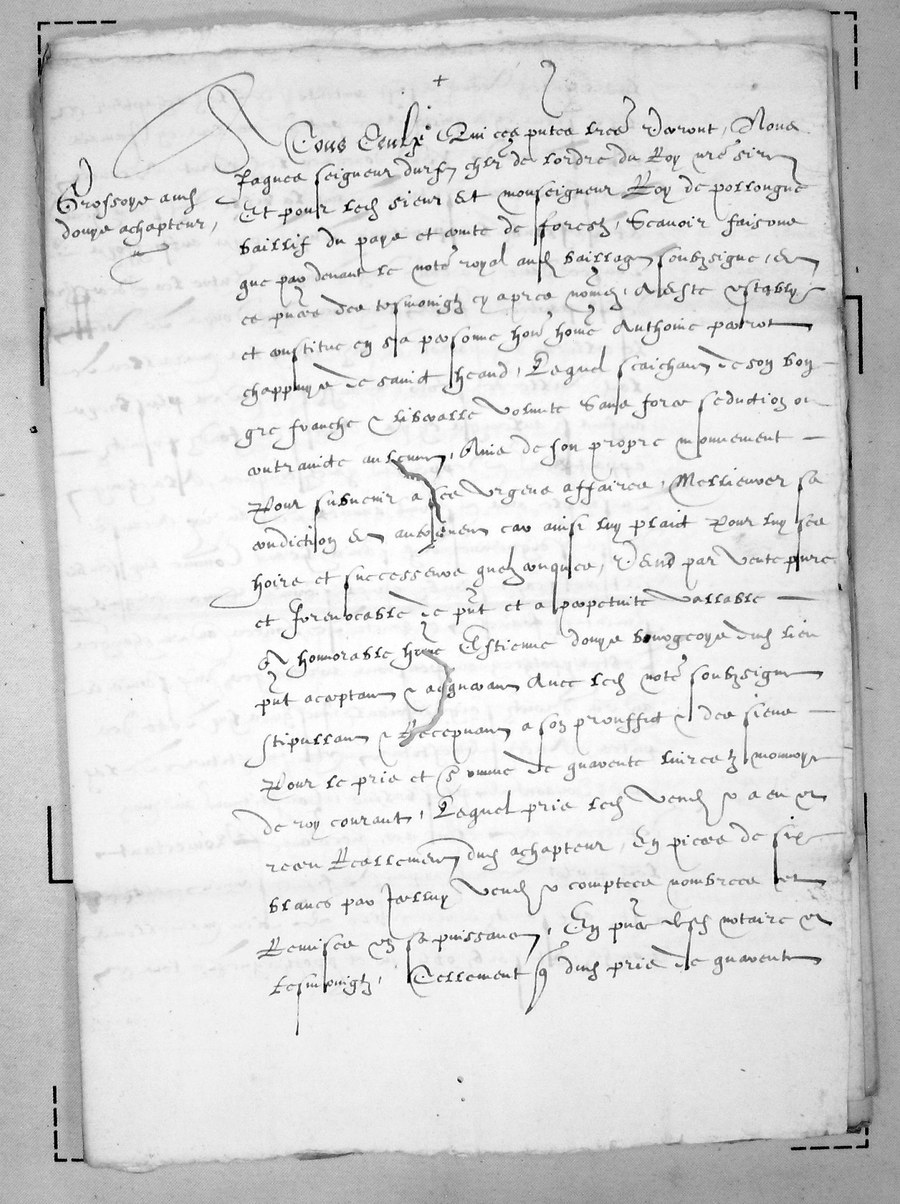 +
A Tous Ceulx Qui ces pntes lres verront, Nous
Jaques seigneur durfe chlr de lordre du Roy nre sire
Grossoye aud
Et pour led sieur Et monseigneur Roy de pollongne
douye achapteur,
Baillif du pays et comte de forestz, Scavoir faisons
que par devant le notre royal aud bailliage soubzsigne, et
es pnces des tesmoingtz cy apres nomez, A este estably
et constitue en sa personne honn home Anthoine parrot
chappuys de sainct heand, Lequel saichant de son bon
gre franche & liberalle volunte sans force seduction ou
contraincte aulcune, Ains de son propre mouvement
Pour subvenir a ses urgens affaires, Mellieurer sa
condiction et aultrement car ainsi luy plaict Pour luy ses
hoirs et successeurs quelzconques, Vend par vente pure
et Irrevocable de pnt et a perpetuite vallable
A honorable home Estienne douye bourgeoys dud lieu
pnt aceptant & acquerant Avec led notre soubzsigne
stipullant & Recepvant a son prouffict & des siens
Pour le pris et somme de quarente luires tz monnoye
de roy courant, Lequel pris led vendr a eu et
receu Reallement dud achapteur, En pieces de six
blancs par Icelluy vendr comptees nombrees et
Remises en sa puissance, En pnce desd notaire et
tesmoingtz, Tellement q dud pris de quarente